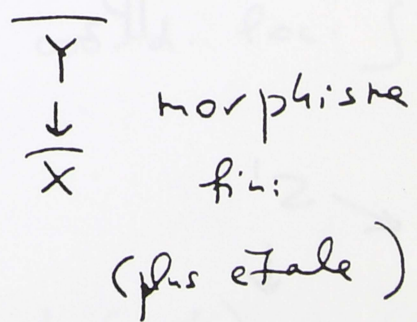 Y
↓
X
morphisme
fini
(plus etale)